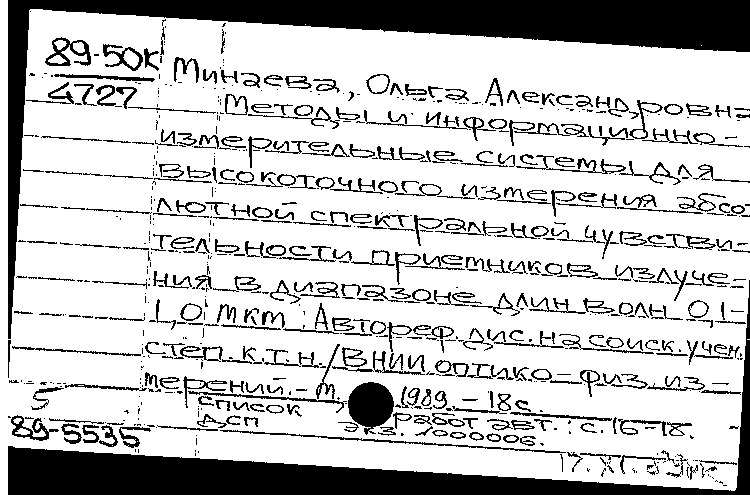 89-50К
4727
Минаева, Ольга Александровна
Методы и информационно-
измерительные системы для
высокоточного измерения абсо
лютной спектральной чувстви-
тельности приемников излуче-
ния в диапазоне длин волн 0,1-
1,0 мкм : Автореф. дис. на соиск. учен.
степ. к.т.н. / ВНИИ оптико-физ. из-
мерений. - М., 1989. - 18 с.
список работ авт.: с. 16-18.
ДСП экз. 1000006.
5
89-5535
17. XI. 89